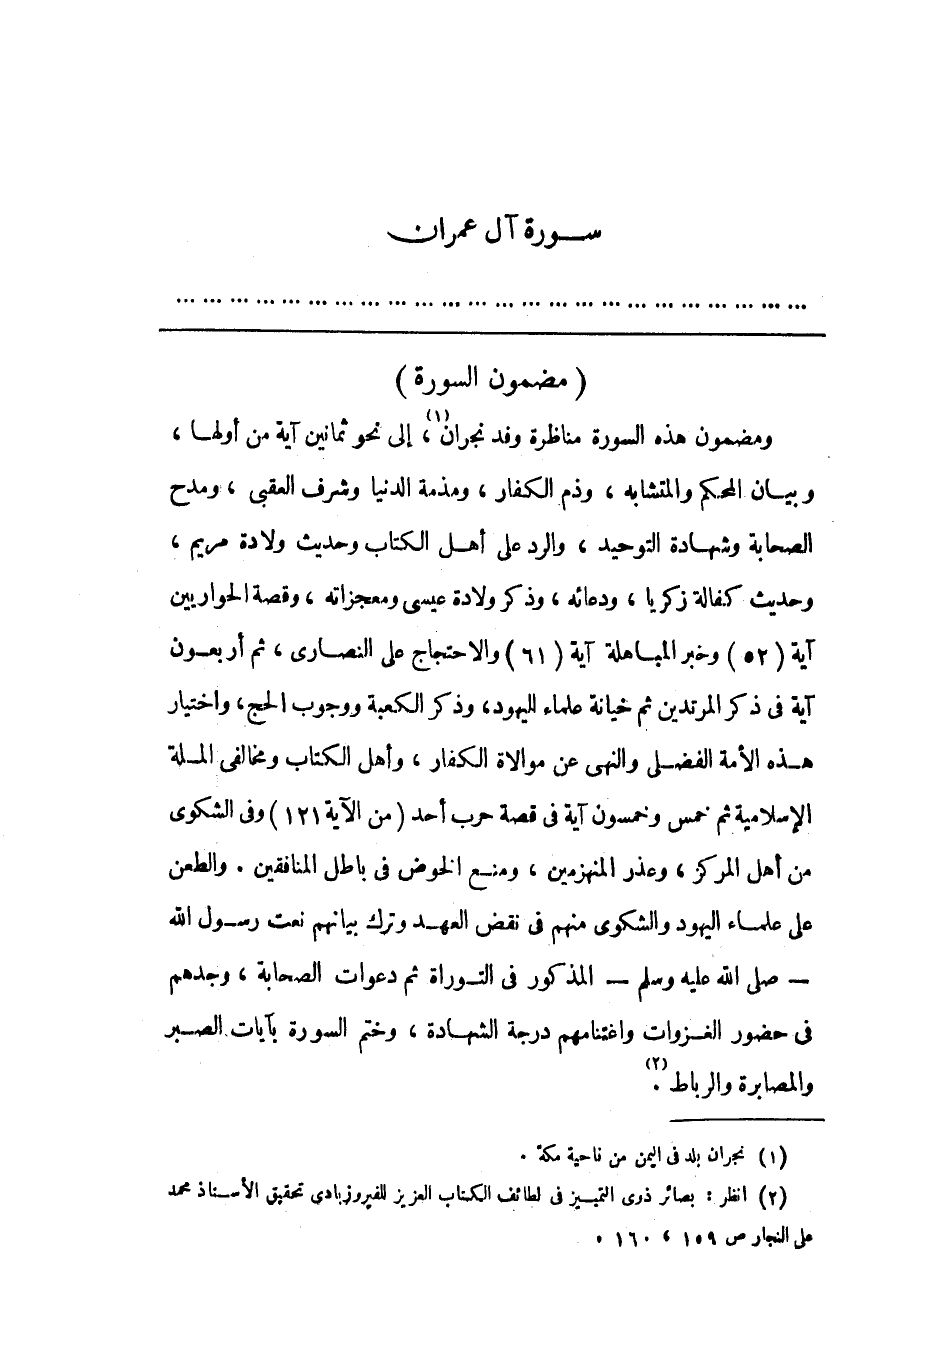 سورة آل عمران
... ... ... ... ... ... ... ... ... ... ... ... ... ... ... ... ... ... ... ... ... ... ... ...
( مضمون السورة )
ومضمون هذه السورة مناظرة وفد نجران(١) ، إلى نحو ثمانين آية من أولها ،
وبيان المحكم والمتشابه ، وذم الكفار ، ومذمة الدنيا وشرف العقبى ، ومدح
الصحابة وشهادة التوحيد ، والرد على أهل الكتاب وحديث ولادة مريم ،
وحديث كفالة زكريا ، ودعائه ، وذكر ولادة عيسى ومعجزاته ، وقصة الحواريين
آية ( ٥٢ ) وخبر المباهلة آية ( ٦١ ) والاحتجاج على النصارى ، ثم أربعون
آية فى ذكر المرتدين ثم خيانة علماء اليهود، وذكر الكعبة ووجوب الحج، واختيار
هذه الأمة الفضلى والنهى عن موالاة الكفار ، وأهل الكتاب ومخالفى الملة
الإسلامية ثم خمس وخمسون آية فى قصة حرب أحد ( من الآية ١٢١ ) وفى الشكوى
من أهل المركز ، وعذر المنهزمين ، ومنع الخوض فى باطل المنافقين . والطعن
على علماء اليهود والشكوى منهم فى نقض العهد وترك بيانهم نعت رسول الله
— صلى الله عليه وسلم — المذكور فى التوراة ثم دعوات الصحابة ، وجدهم
فى حضور الغزوات واغتنامهم درجة الشهادة ، وختم السورة بآيات الصبر
والمصابرة والرباط(٢) .
(١) نجران بلد فى اليمن من ناحية مكة .
(٢) انظر : بصائر ذوى التمييز فى لطائف الكتاب العزيز للفيروزبادى تحقيق الأستاذ محمد
على النجار ص ١٥٩ ، ١٦٠ .